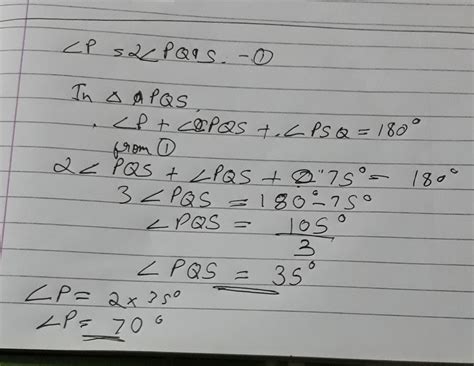 ∠P = 2∠PQS. -①
In △ PQS,
∠P + ∠PQS + ∠PSQ = 180°
from ①
2∠PQS + ∠PQS + 75° = 180°
3∠PQS = 180° - 75°
∠PQS = 105°/3
∠PQS = 35°
∠P = 2 × 35°
∠P = 70°